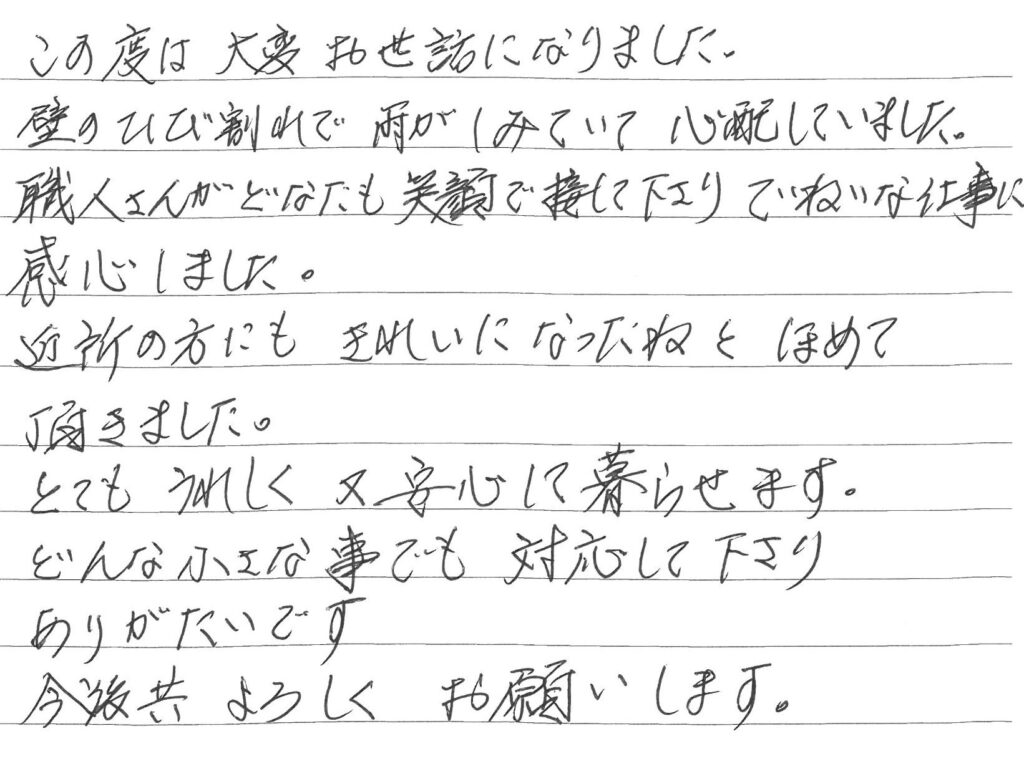 この度は大変お世話になりました。
壁のひび割れで雨がしみていて心配していました。
職人さんがどなたも笑顔で接して下さりていねいな仕事に
感心しました。
近所の方にもきれいになったねとほめて
頂きました。
とてもうれしく又安心して暮らせます。
どんな小さな事でも対応して下さり
ありがたいです
今後共よろしくお願いします。